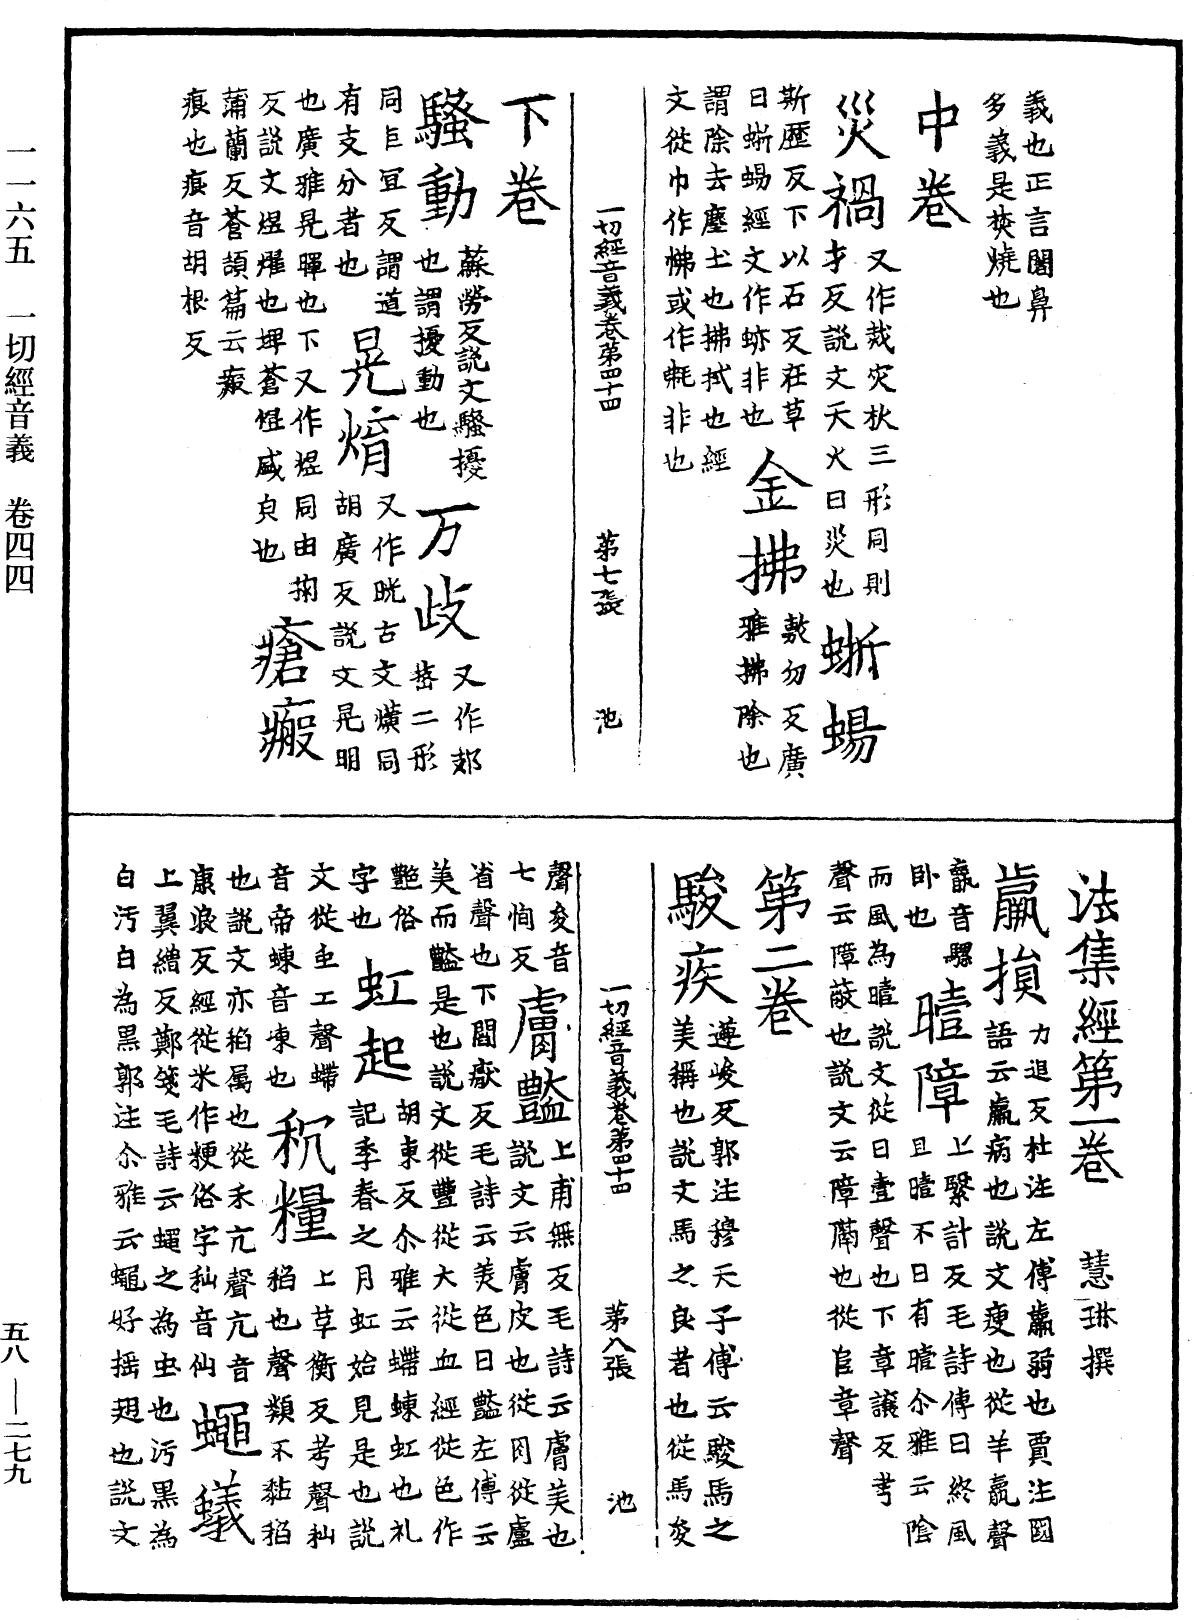 義也正言闍鼻
多義是焚燒也
中卷
災禍 又作烖灾秋三形同則
才反說文天火曰災也 蜥蜴
斯歷反下以石反在草
曰蜥蜴經文作蛴非也 金拂 敷勿反廣
雅拂除也
謂除去塵土也拂拭也經
文從巾作怫或作㧊非也
一切經音義卷第四十四 第七張 池
下卷
騷動 蘇勞反說文騷擾
也謂擾動也 万歧 又作郂
𡺼二形
同巨宜反謂道
有支分者也 晃焴 又作晄古文爌同
胡廣反說文晃明
也廣雅晃暉也下又作焜同由掬
反說文焜燿也埤蒼焜盛皃也 瘡瘢
蒲蘭反蒼頡篇云瘢
痕也痕音胡根反
法集經第一卷 慧琳撰
羸損 力追反杜注左傳羸弱也賈注國
語云羸病也說文瘦也從羊𦝠聲
𦝠音騾 曀障 上繄計反毛詩傳曰終風
且曀不日有曀尒雅云陰
而風為曀說文從日壹聲也下章讓反考
聲云障蔽也說文云障隔也從𨸏章聲
第二卷
駿疾 遵峻反郭注穆天子傳云駿馬之
美稱也說文馬之良者也從馬夋
一切經音義卷第四十四 第八張 池
聲夋音
七恂反 膚豔 上甫無反毛詩云膚美也
說文云膚皮也從肉從盧
省聲也下閻厭反毛詩云美色曰豔左傳云
美而豔是也說文從豐從大從血經從色作
艷俗
字也 虹起 胡東反尒雅云螮蝀虹也礼
記季春之月虹始見是也說
文從虫工聲螮
音帝蝀音東也 秔糧 上草衡反考聲秈
稻也聲類不黏稻
也說文亦稻属也從禾亢聲亢音
康浪反經從米作粳俗字秈音仙 蠅蟻
上翼繒反鄭箋毛詩云蠅之為虫也污黑為
白污白為黑郭注尒雅云蠅好摇翅也說文
一一六五 一切經音義 卷四四
五八—二七九